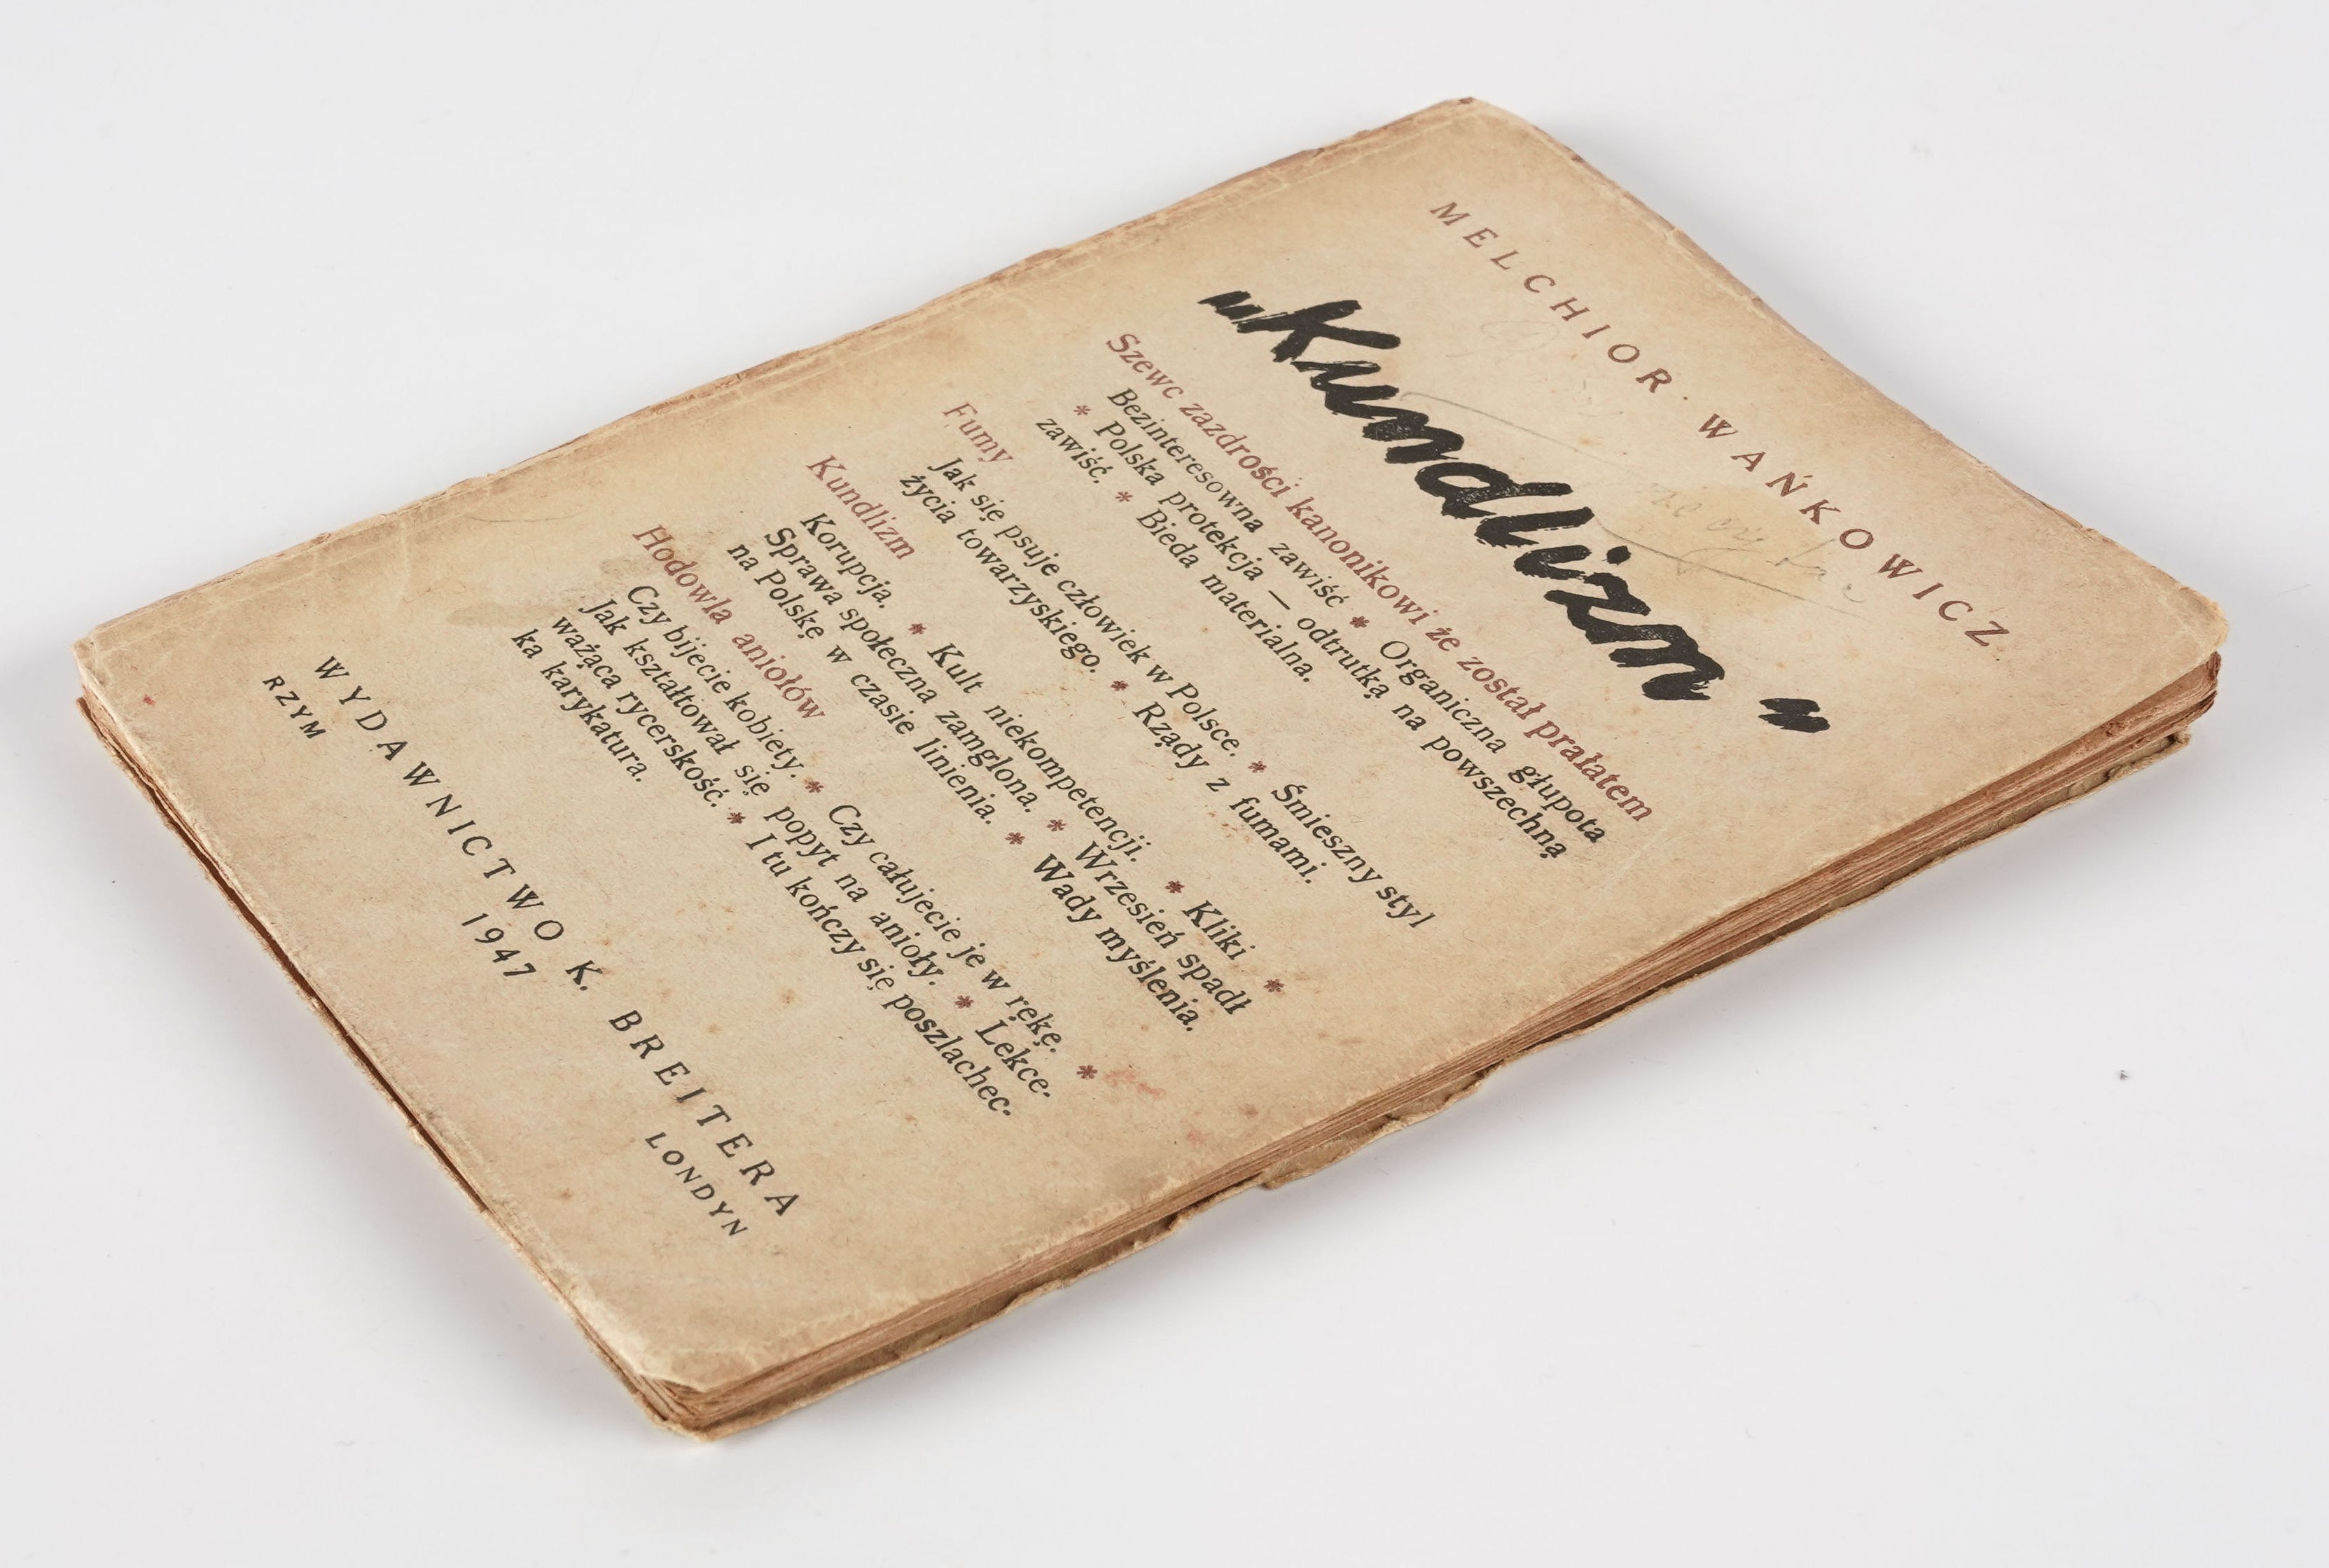 MELCHIOR WAŃKOWICZ
„Kundlizm"
Szewc zazdrości kanonikowi że został prałatem
Bezinteresowna zawiść * Organiczna głupota
* Polska protekcja — odtrutką na powszechną
zawiść. * Bieda materialna.
Fumy
Jak się psuje człowiek w Polsce. * Śmieszny styl
życia towarzyskiego. * Rządy z fumami.
Kundlizm
Korupcja. * Kult niekompetencji. * Kliki *
Sprawa społeczna zamglona. * Wrzesień spadł
na Polskę w czasie linienia. * Wady myślenia.
Hodowla aniołów
Czy bijecie kobiety. * Czy całujecie je w rękę. *
Jak kształtował się popyt na anioły. * Lekce-
ważąca rycerskość. * I tu kończy się poszlachec-
ka karykatura.
WYDAWNICTWO K. BREITERA
RZYM 1947 LONDYN